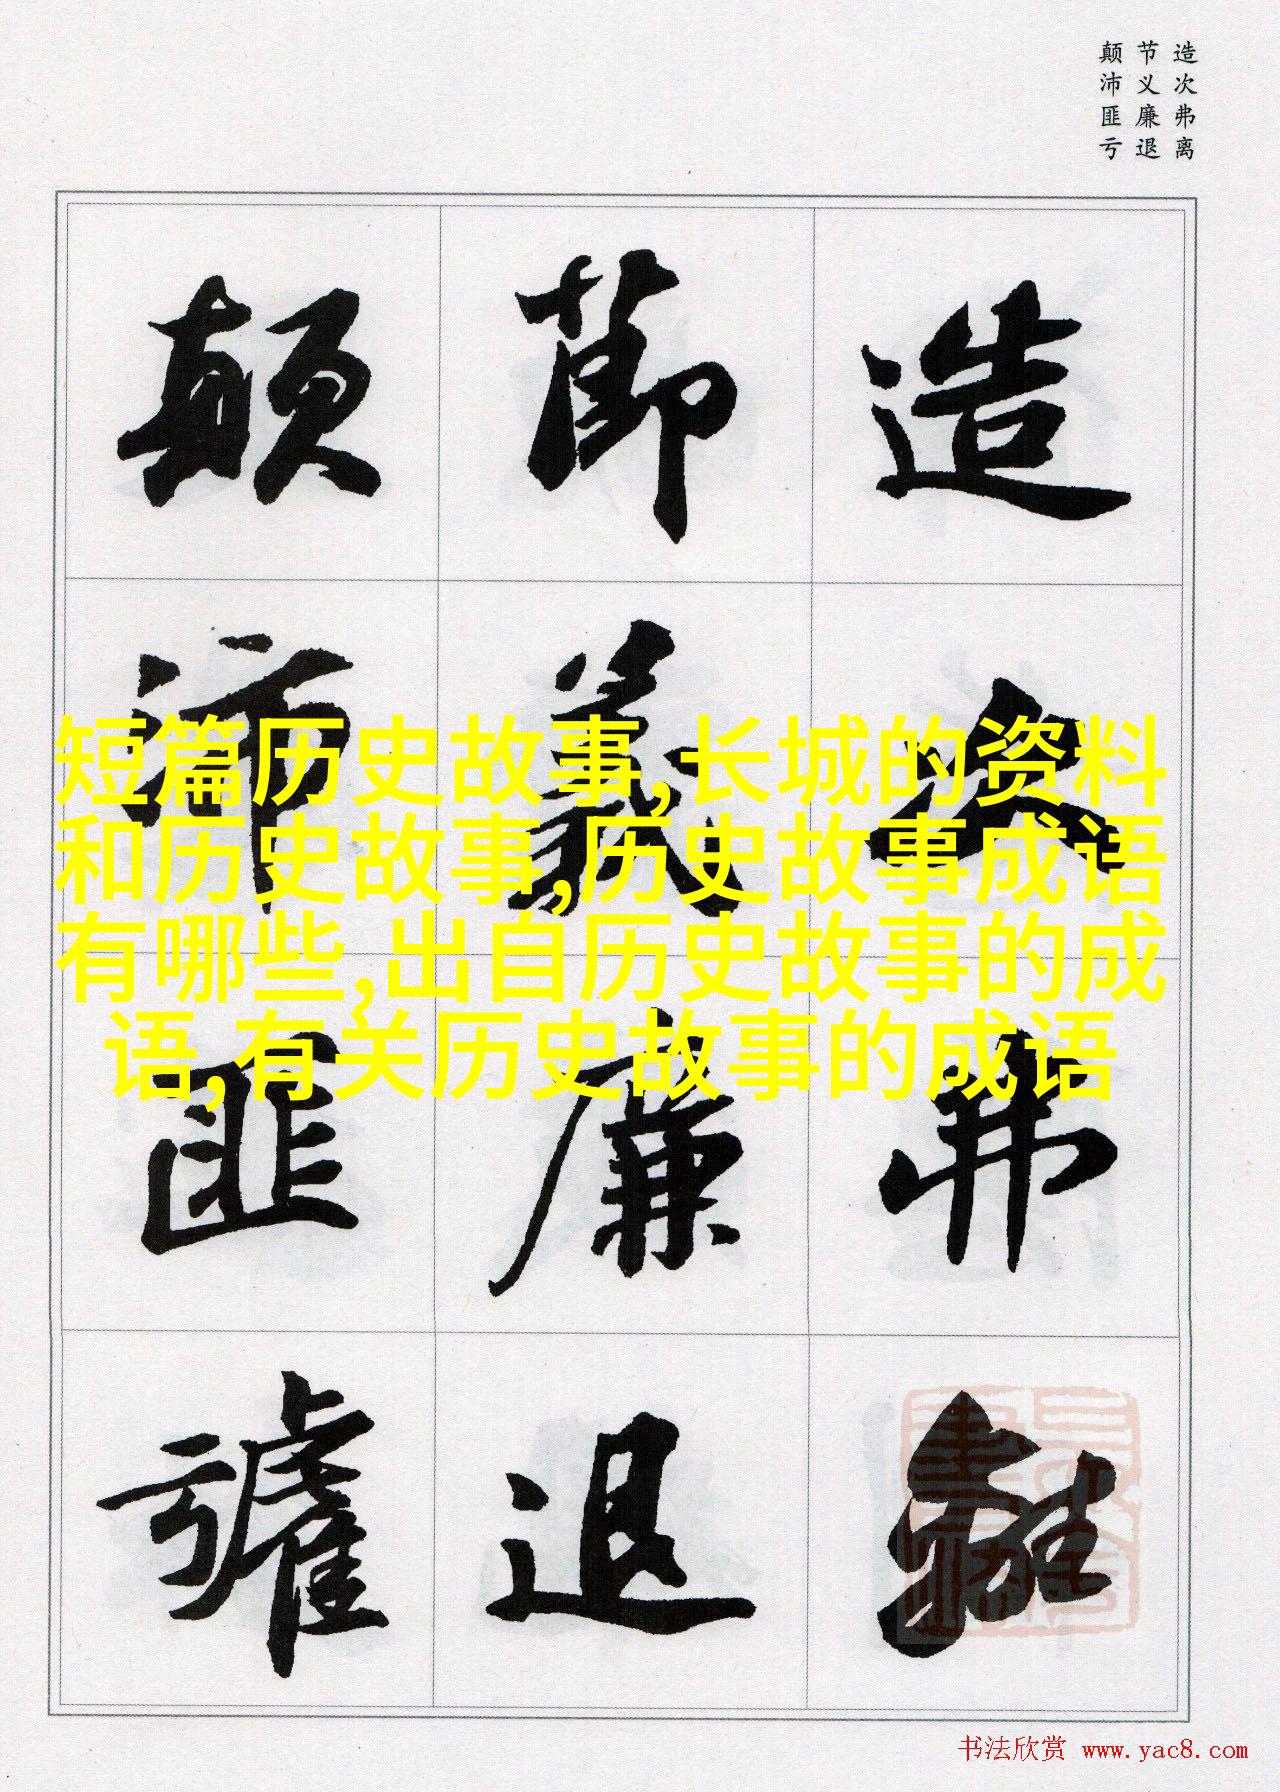 造次弗离
节义廉退
颠沛匪亏
造次弗離
節義廉退
顛沛匪虧
短篇历史故事,长城的资料
和历史故事,历史故事成语
有哪些,出自历史故事的成
语,有关历史故事的成语
书法欣赏 www.yac8.com